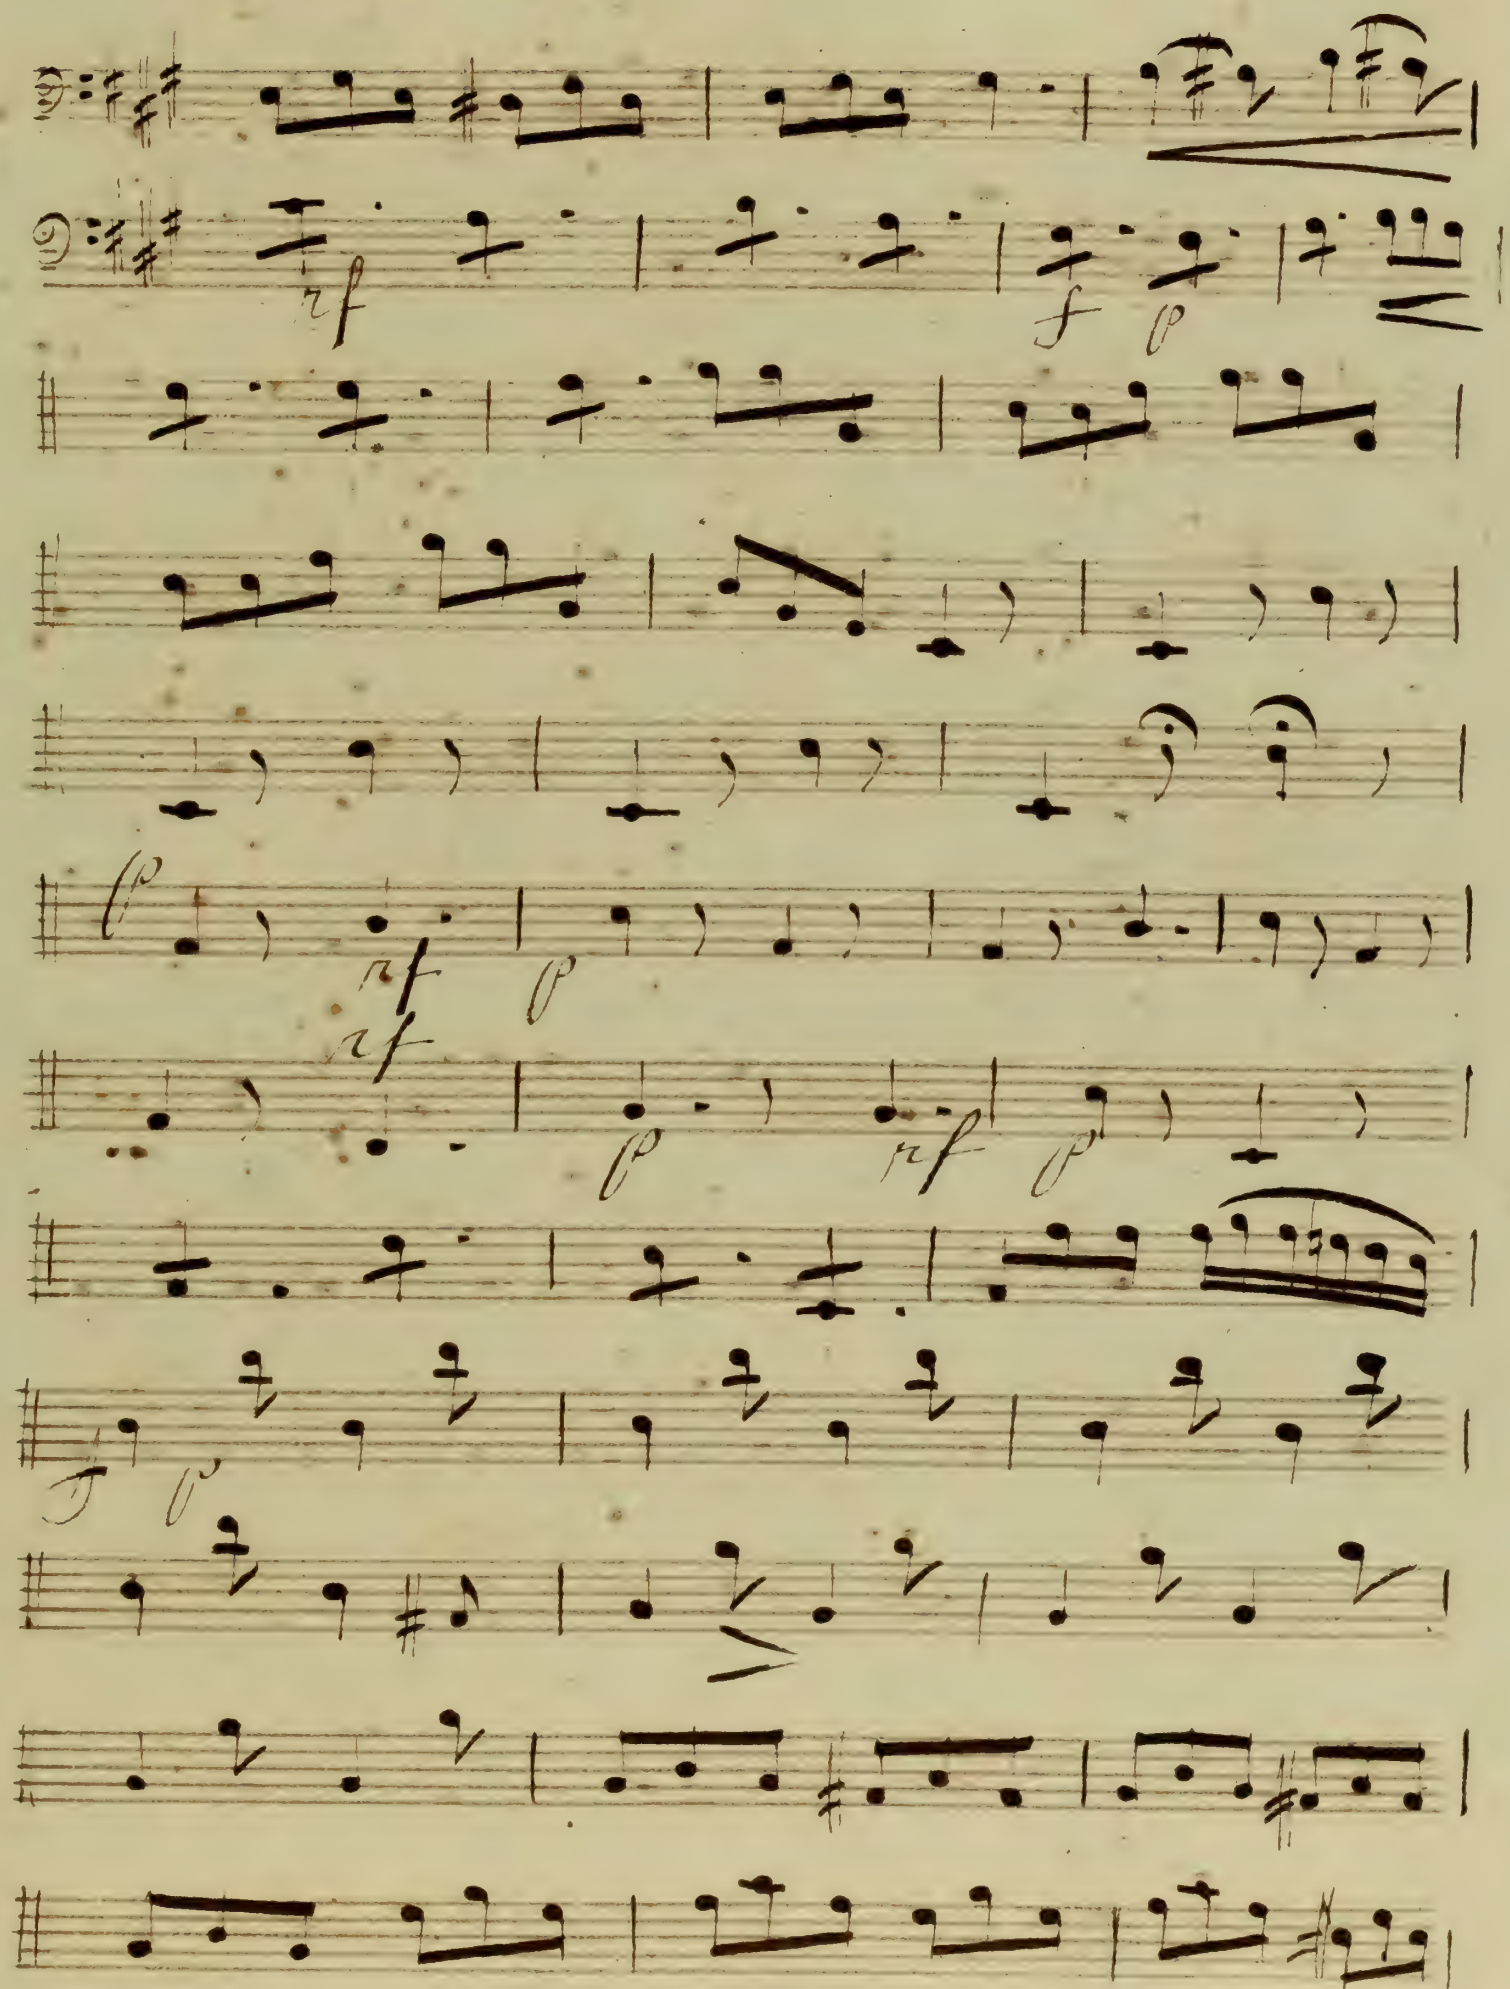 rf f p
p rf p
rf p rf p
f p